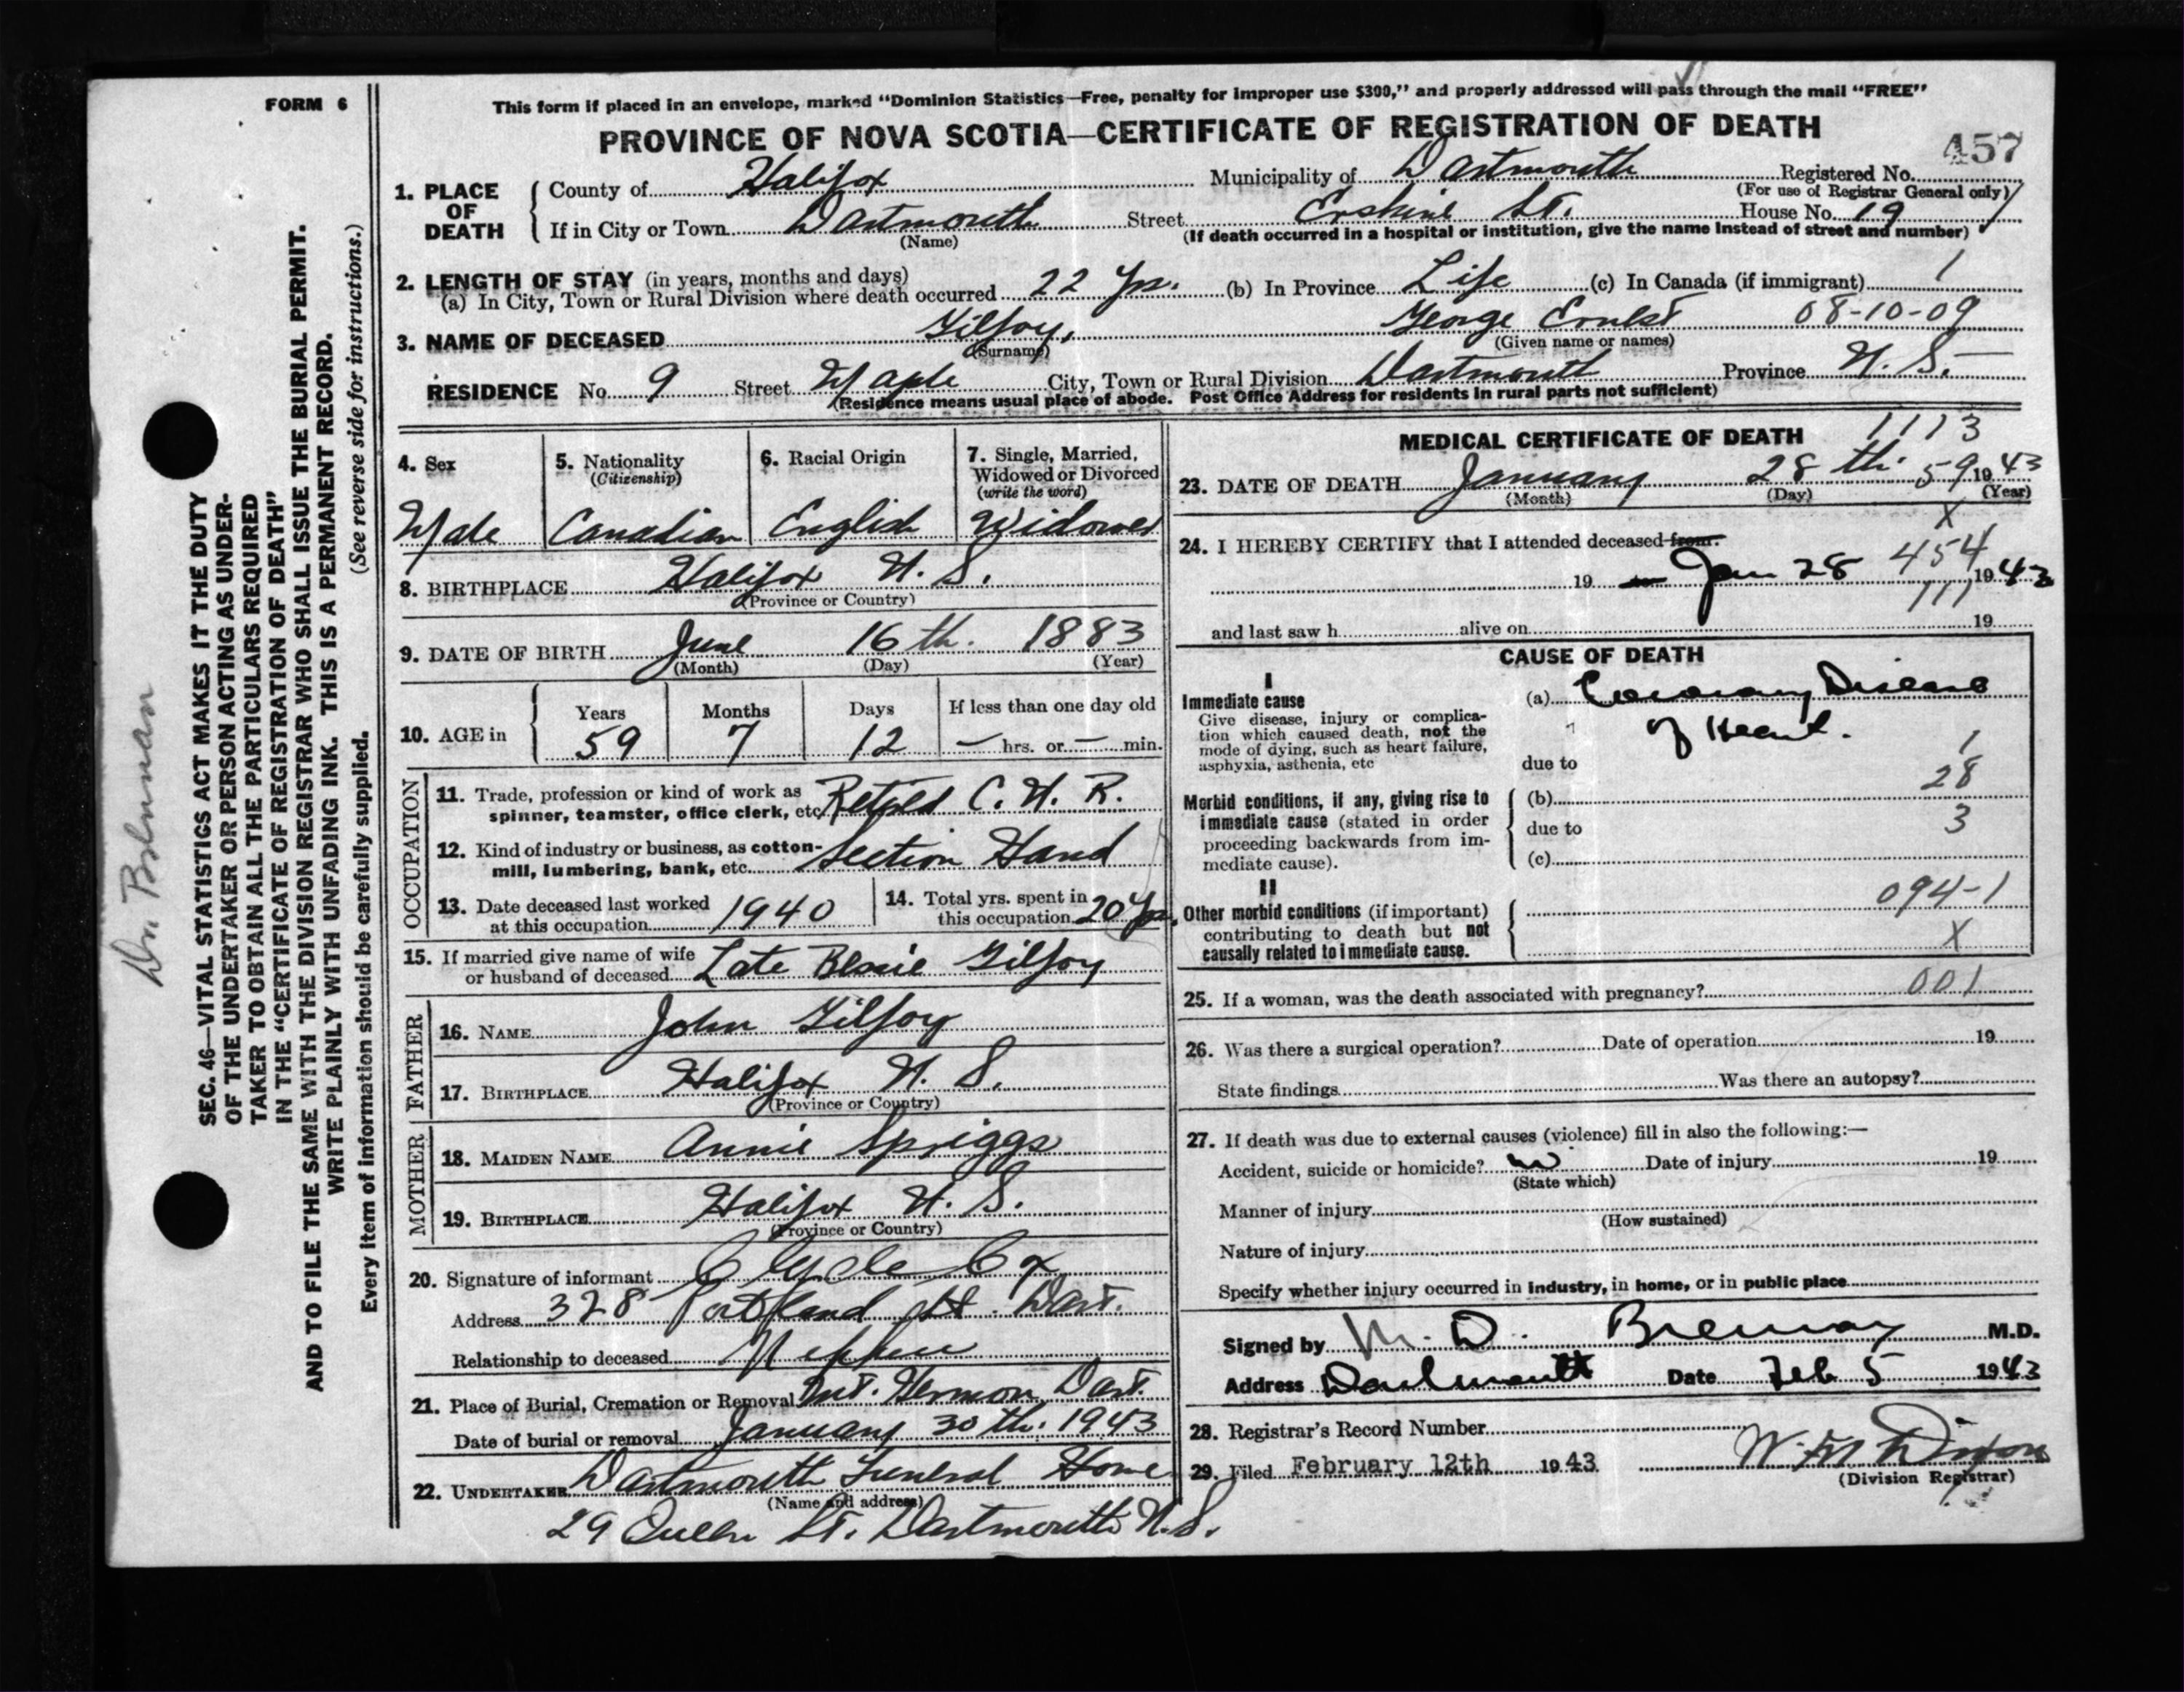 FORM 6
This form if placed in an envelope, marked "Dominion Statistics—Free, penalty for improper use $300," and properly addressed will pass through the mail "FREE"
PROVINCE OF NOVA SCOTIA—CERTIFICATE OF REGISTRATION OF DEATH
457
1. PLACE OF DEATH
County of Halifax Municipality of Dartmouth Registered No.
(For use of Registrar General only)
If in City or Town Dartmouth Street Erskine St. House No. 19
(Name) (If death occurred in a hospital or institution, give the name instead of street and number)
2. LENGTH OF STAY (in years, months and days)
(a) In City, Town or Rural Division where death occurred 22 Yrs. (b) In Province Life (c) In Canada (if immigrant) 1
3. NAME OF DECEASED Gilfoy, George Ernest 08-10-09
(Surname) (Given name or names)
RESIDENCE No. 9 Street Maple City, Town or Rural Division Dartmouth Province N. S.
(Residence means usual place of abode. Post Office Address for residents in rural parts not sufficient)
4. Sex
Male
5. Nationality
(Citizenship)
Canadian
6. Racial Origin
English
7. Single, Married,
Widowed or Divorced
(write the word)
Widower
8. BIRTHPLACE Halifax N. S.
(Province or Country)
9. DATE OF BIRTH June 16th. 1883
(Month) (Day) (Year)
10. AGE in
Years Months Days If less than one day old
59 7 12 — hrs. or — min.
OCCUPATION
11. Trade, profession or kind of work as
spinner, teamster, office clerk, etc. C. N. R.
12. Kind of industry or business, as cotton-
mill, lumbering, bank, etc. Section Hand
13. Date deceased last worked
at this occupation 1940
14. Total yrs. spent in
this occupation 20 Yrs.
15. If married give name of wife
or husband of deceased Late Bessie Gilfoy
FATHER
16. NAME John Gilfoy
17. BIRTHPLACE Halifax N. S.
(Province or Country)
MOTHER
18. MAIDEN NAME Annie Spriggs
19. BIRTHPLACE Halifax N. S.
(Province or Country)
20. Signature of informant Clyde Cox
Address 328 Portland St. Dart.
Relationship to deceased Nephew
21. Place of Burial, Cremation or Removal Mt. Hermon, Dart.
Date of burial or removal January 30th. 1943
22. UNDERTAKER Dartmouth Funeral Home
(Name and address)
29 Queen St. Dartmouth N.S.
MEDICAL CERTIFICATE OF DEATH
1113
23. DATE OF DEATH January 28th. 59 1943
(Month) (Day) (Year)
X
24. I HEREBY CERTIFY that I attended deceased from:
454
19 to Jan 28 1943
111
and last saw h alive on 19
CAUSE OF DEATH
I
Immediate cause
Give disease, injury or complica-
tion which caused death, not the
mode of dying, such as heart failure,
asphyxia, asthenia, etc
(a) Coronary Disease
of Heart.
due to 1
28
Morbid conditions, if any, giving rise to
immediate cause (stated in order
proceeding backwards from im-
mediate cause).
(b)
due to 3
(c)
II
Other morbid conditions (if important)
contributing to death but not
causally related to immediate cause.
094-1
X
25. If a woman, was the death associated with pregnancy? 001
26. Was there a surgical operation? Date of operation 19
State findings Was there an autopsy?
27. If death was due to external causes (violence) fill in also the following:—
Accident, suicide or homicide? no Date of injury 19
(State which)
Manner of injury
(How sustained)
Nature of injury
Specify whether injury occurred in industry, in home, or in public place
Signed by M. D. Brennan M.D.
Address Dartmouth Date Feb 5 1943
28. Registrar's Record Number
29. Filed February 12th 1943 Dixon
(Division Registrar)
Dr Brennan
SEC. 46—VITAL STATISTICS ACT MAKES IT THE DUTY
OF THE UNDERTAKER OR PERSON ACTING AS UNDER-
TAKER TO OBTAIN ALL THE PARTICULARS REQUIRED
IN THE "CERTIFICATE OF REGISTRATION OF DEATH"
AND TO FILE THE SAME WITH THE DIVISION REGISTRAR WHO SHALL ISSUE THE BURIAL PERMIT.
WRITE PLAINLY WITH UNFADING INK. THIS IS A PERMANENT RECORD.
Every item of information should be carefully supplied. (See reverse side for instructions.)